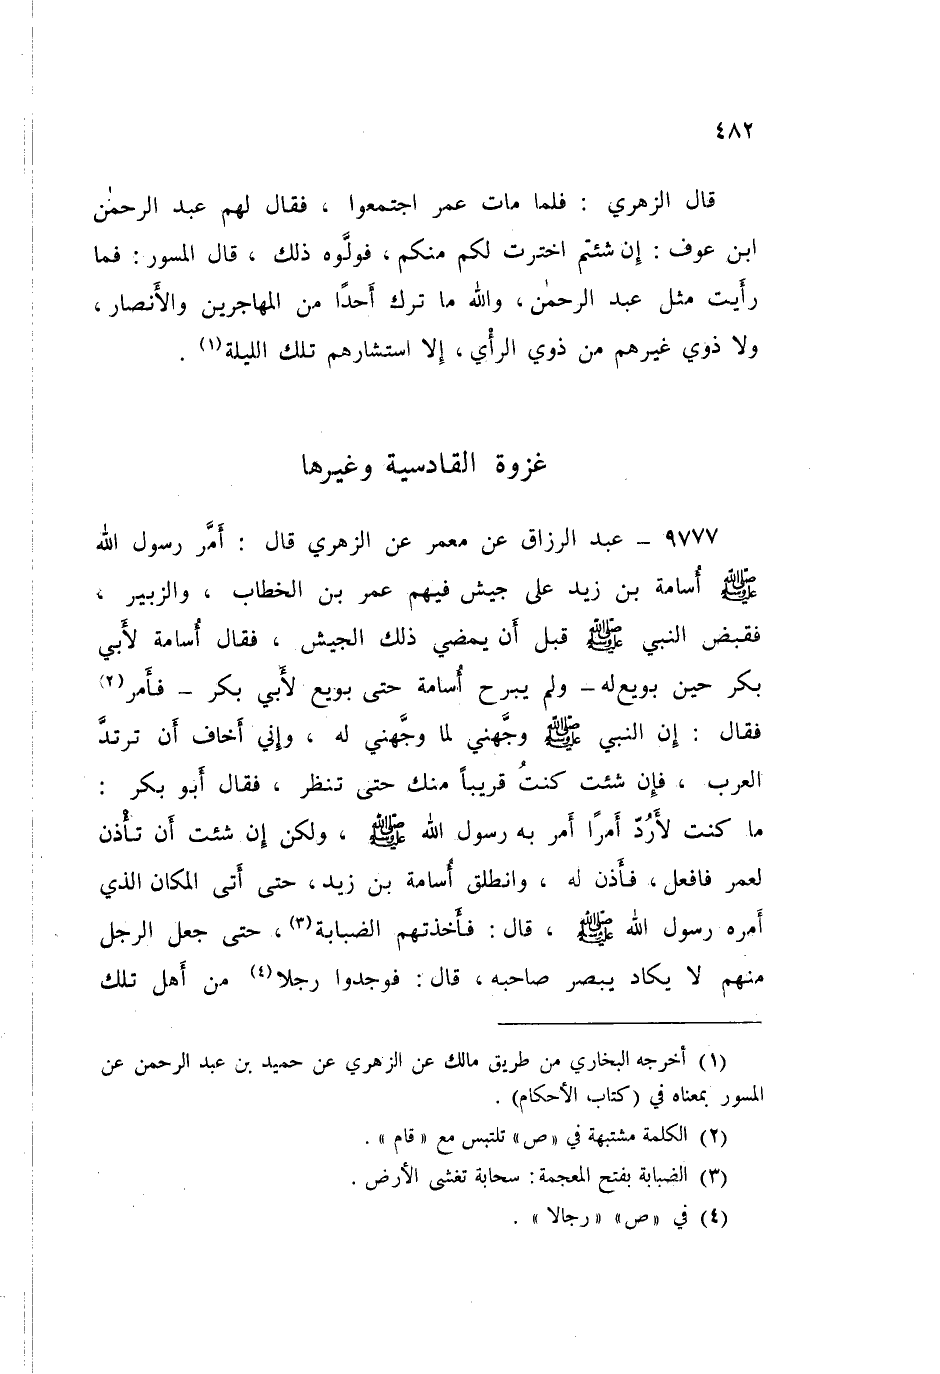 ٤٨٢
قال الزهري : فلما مات عمر اجتمعوا ، فقال لهم عبد الرحمٰن
ابن عوف : إن شئتم اخترت لكم منكم ، فولَّوه ذلك ، قال المسور : فما
رأَيت مثل عبد الرحمٰن ، والله ما ترك أَحدًا من المهاجرين والأَنصار ،
ولا ذوي غيرهم من ذوي الرأْي ، إلا استشارهم تلك الليلة(١) .
غزوة القادسية وغيرها
٩٧٧٧ – عبد الرزاق عن معمر عن الزهري قال : أَمَّر رسول الله
ﷺ أُسامة بن زيد على جيش فيهم عمر بن الخطاب ، والزبير ،
فقبض النبي ﷺ قبل أَن يمضي ذلك الجيش ، فقال أُسامة لأَبي
بكر حين بويع له – ولم يبرح أُسامة حتى بويع لأَبي بكر – فأَمر(٢)
فقال : إن النبي ﷺ وجَّهني لما وجَّهني له ، وإني أَخاف أَن ترتدَّ
العرب ، فإن شئت كنتُ قريباً منك حتى تنظر ، فقال أَبو بكر :
ما كنت لأَرُدّ أَمرًا أَمر به رسول الله ﷺ ، ولكن إن شئت أَن تأْذن
لعمر فافعل ، فأَذن له ، وانطلق أُسامة بن زيد ، حتى أَتى المكان الذي
أَمره رسول الله ﷺ ، قال : فأَخذتهم الضبابة(٣) ، حتى جعل الرجل
منهم لا يكاد يبصر صاحبه ، قال : فوجدوا رجلا(٤) من أَهل تلك
(١) أخرجه البخاري من طريق مالك عن الزهري عن حميد بن عبد الرحمن عن
المسور بمعناه في (كتاب الأحكام) .
(٢) الكلمة مشتبهة في «ص» تلتبس مع « قام » .
(٣) الضبابة بفتح المعجمة : سحابة تغشى الأرض .
(٤) في «ص» « رجالا » .